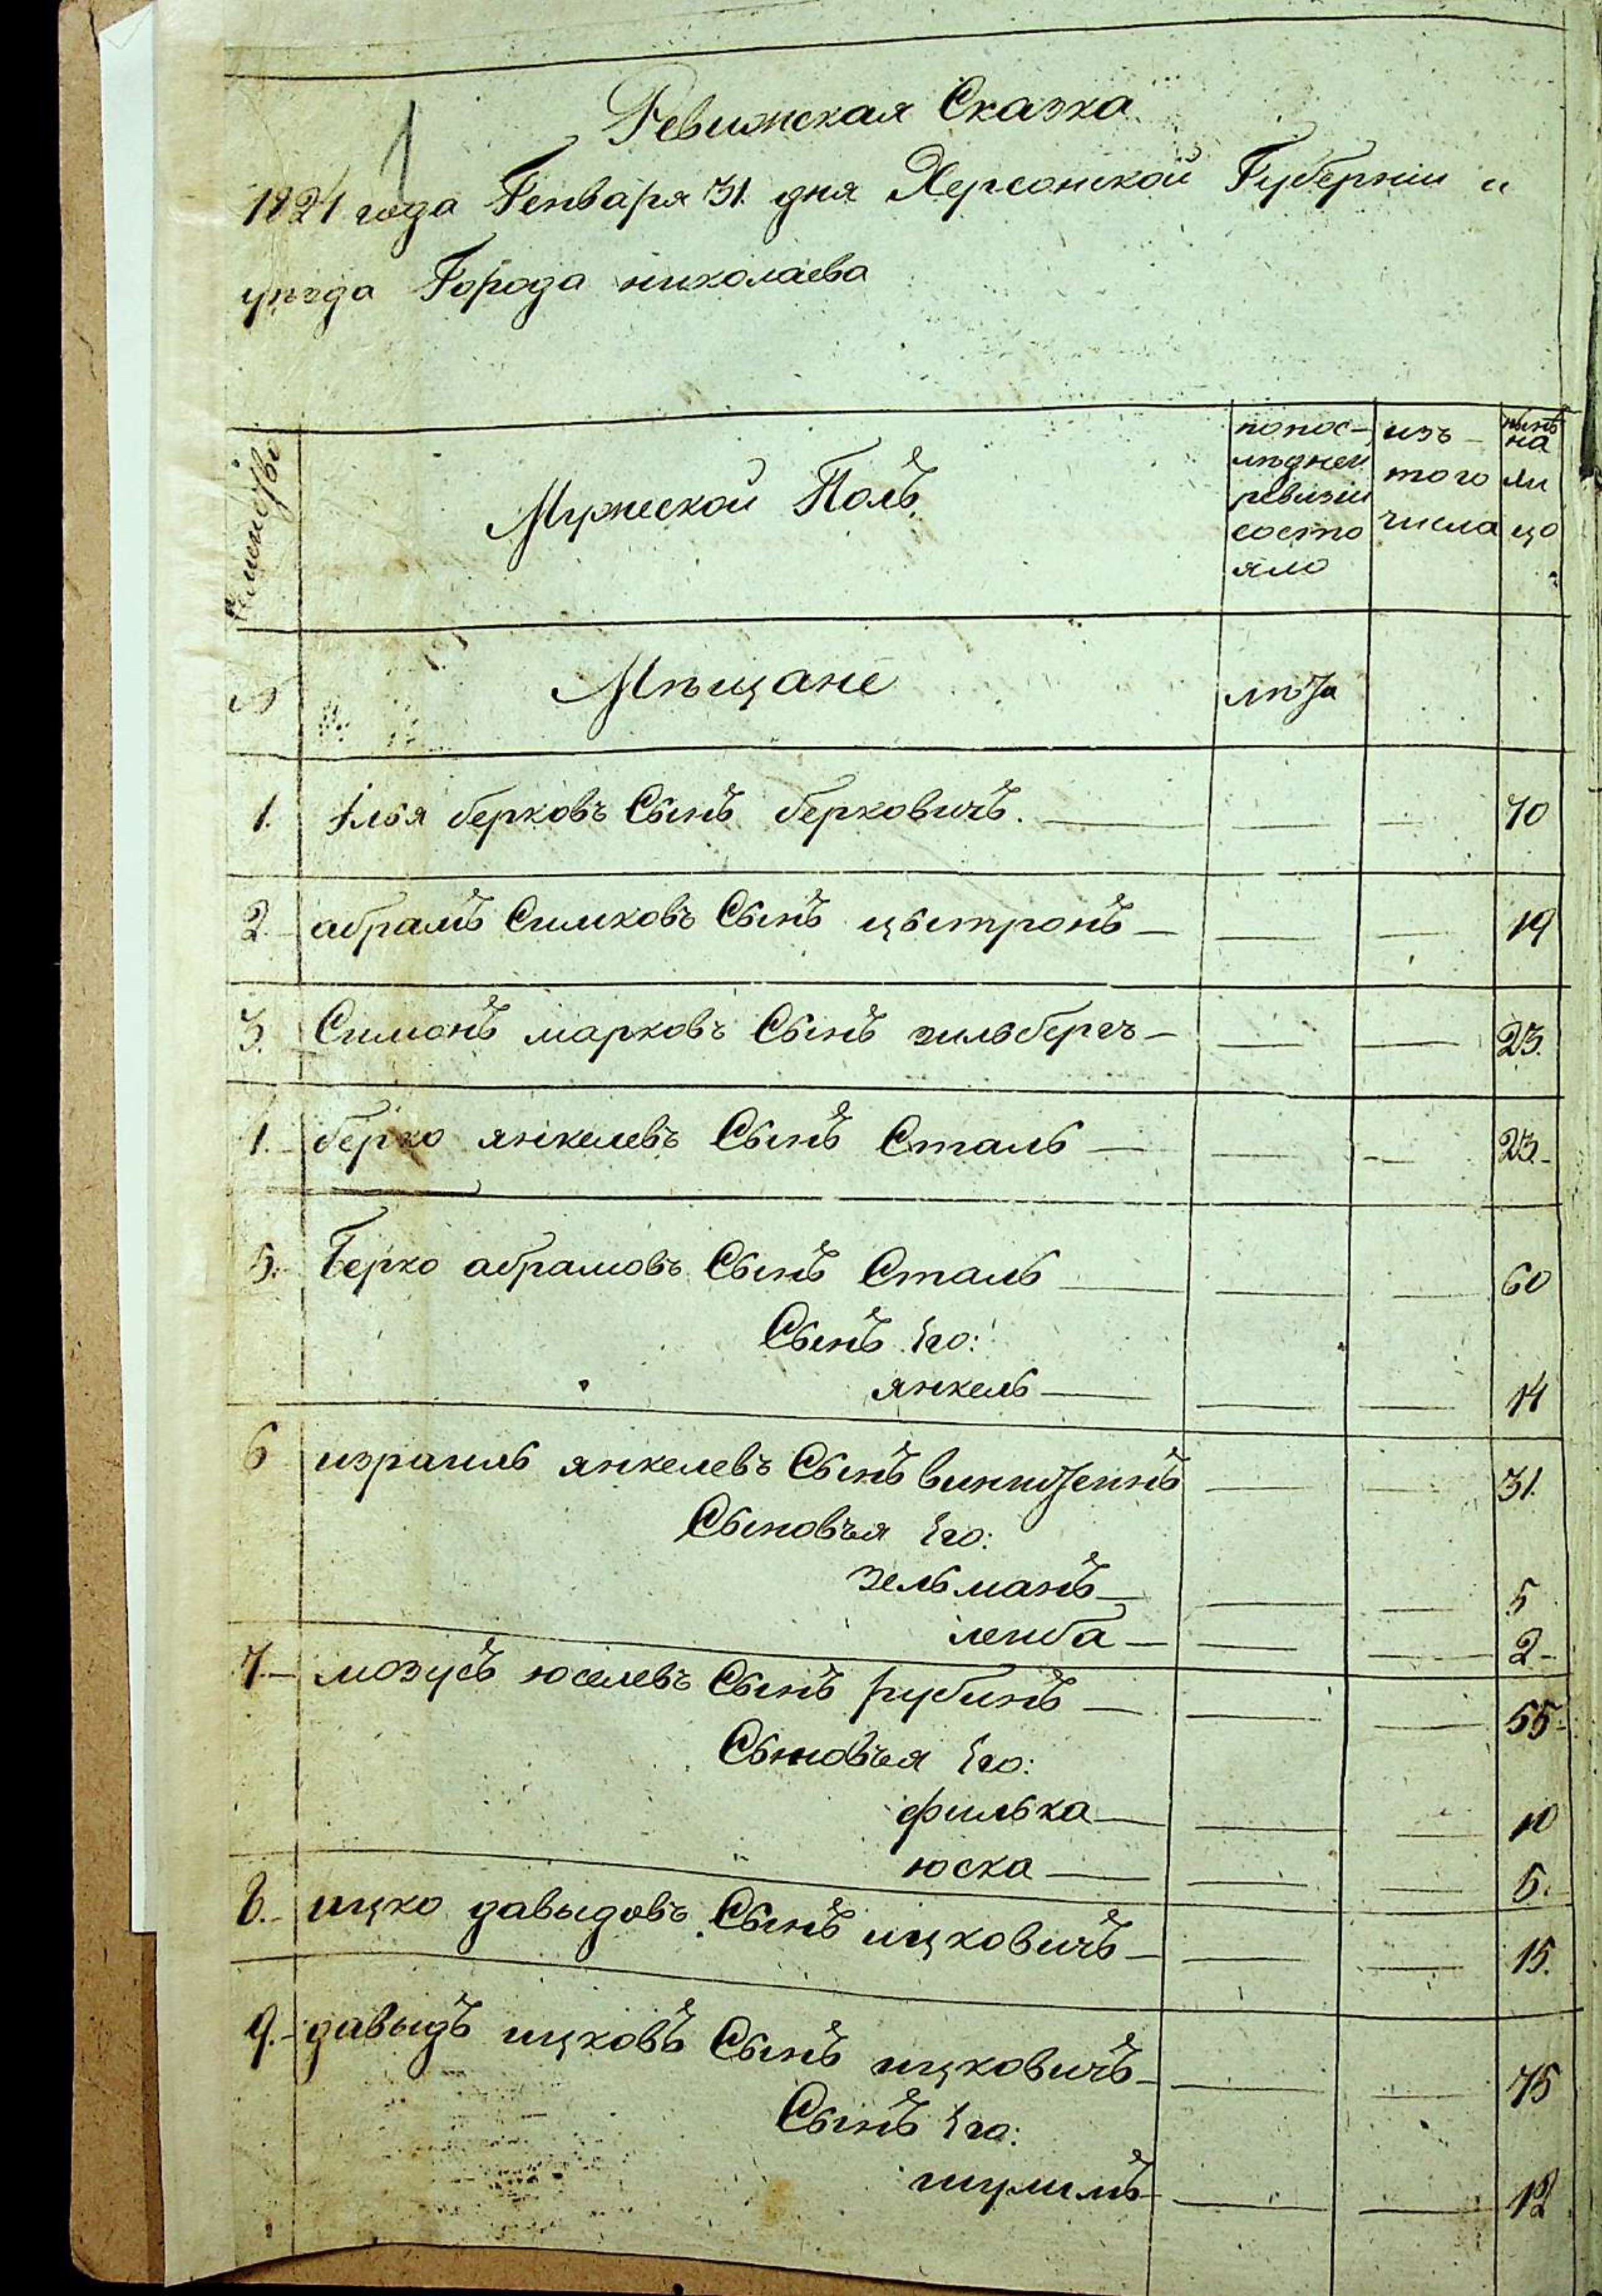 1
Ревижская Сказка
1824 года Генваря 31. дня Херсонской Губерніи и
уѣзда Города николаева
Семейства
Мужеской Полъ.
попос-
лѣдней
ревизіи
состо
яло
изъ
того
числа
нынѣ
на
ли
цо
№
Мѣщане
лѣта
1. Iлья берковъ Сынъ берковичъ. 70
2. абрамъ Симковъ Сынъ цытронъ 19
3. Симонъ марковъ Сынъ зильбергъ 23.
4. берко янкелевъ Сынъ Сталь 23.
5. Берко абрамовъ Сынъ Сталь 60
Сынъ Его:
янкель 14
6 израиль янкелевъ Сынъ 31.
Сыновъя Его:
зельманъ 5
лейба 2
7. мозусъ юселевъ Сынъ рубинъ 55
Сыновъя Его:
филька 10
юска 5.
8. ицко давыдовъ Сынъ ицковичъ 15.
9. давыдъ ицковъ Сынъ ицковичъ 75
Сынъ Его:
шулимъ 12